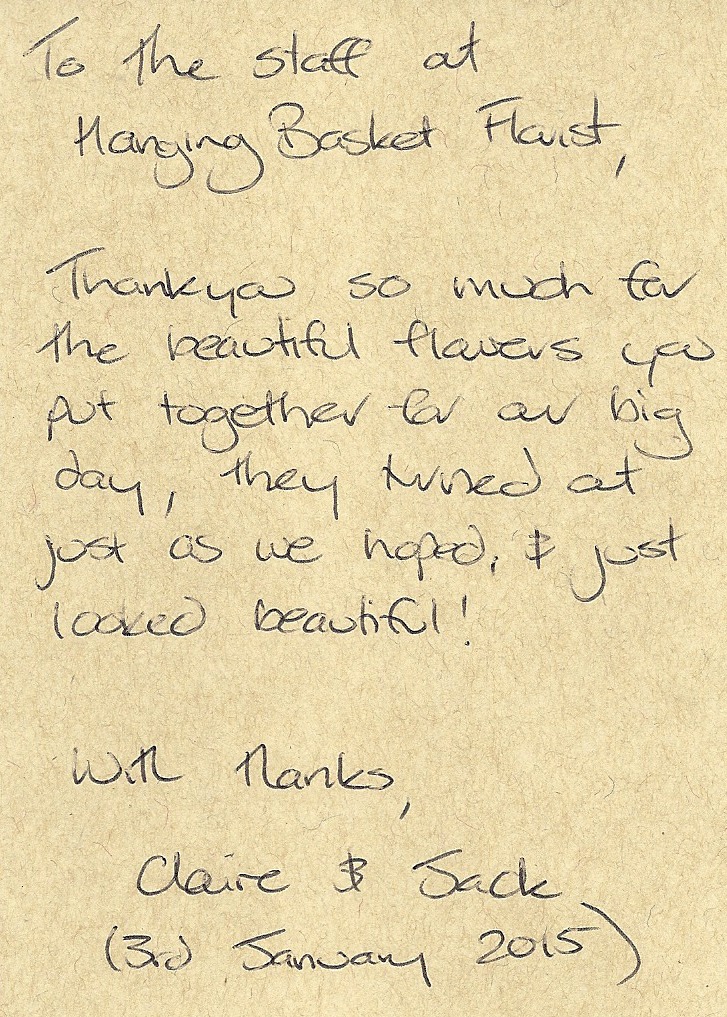 To the staff at
Hanging Basket Florist,
Thankyou so much for
the beautiful flowers you
put together for our big
day, they turned out
just as we hoped, & just
looked beautiful!
With thanks,
Claire & Jack
(3rd January 2015)